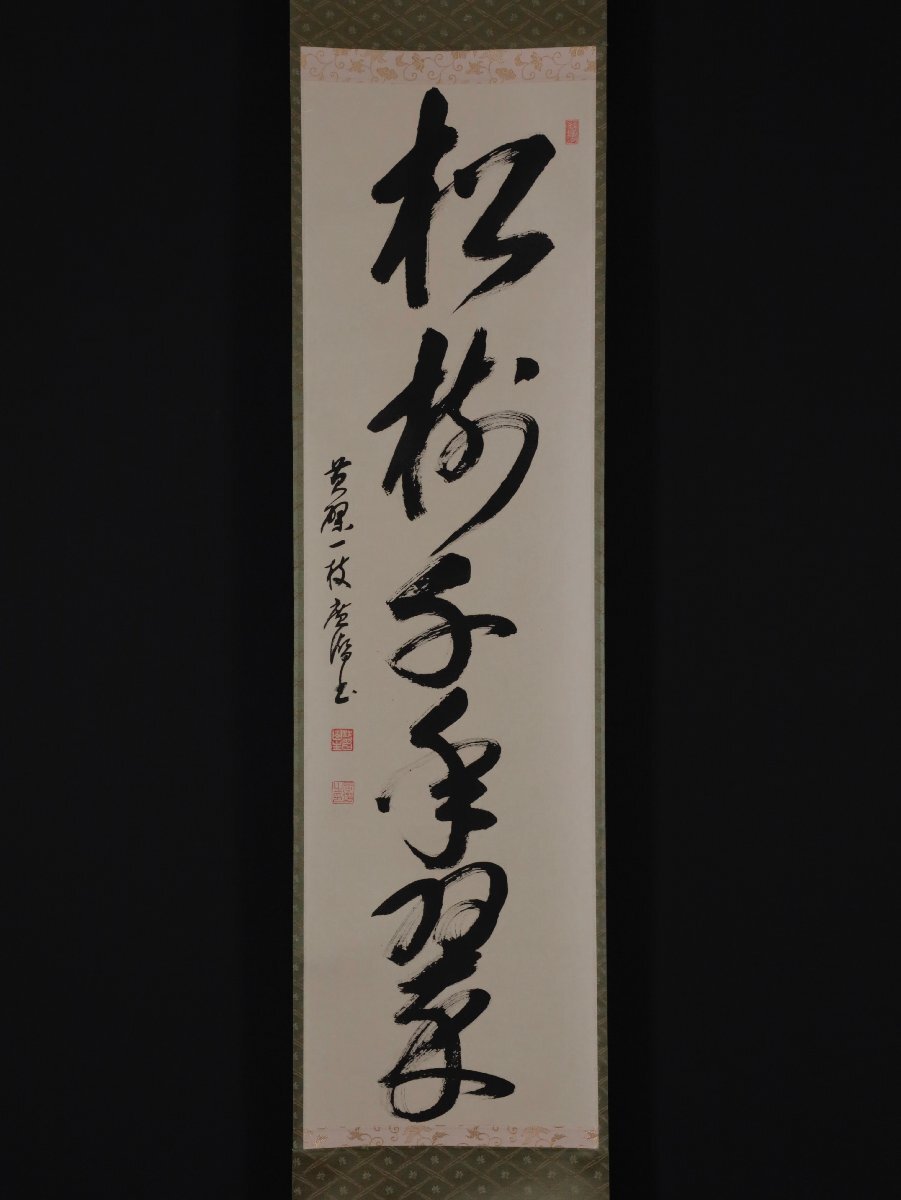 松樹千年翠
黄檗一枝廣濟書